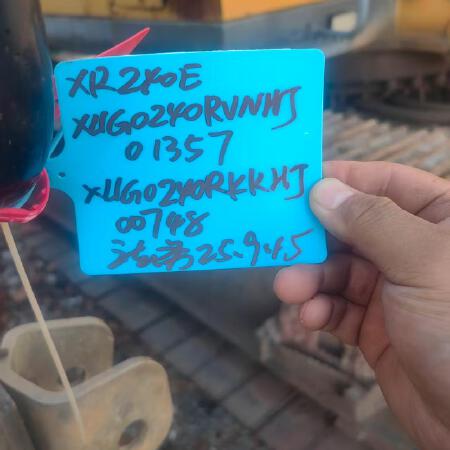 XR240E
XUG0240RVNHJ
01357
XUG0240RKKHJ
00748
25.9.45